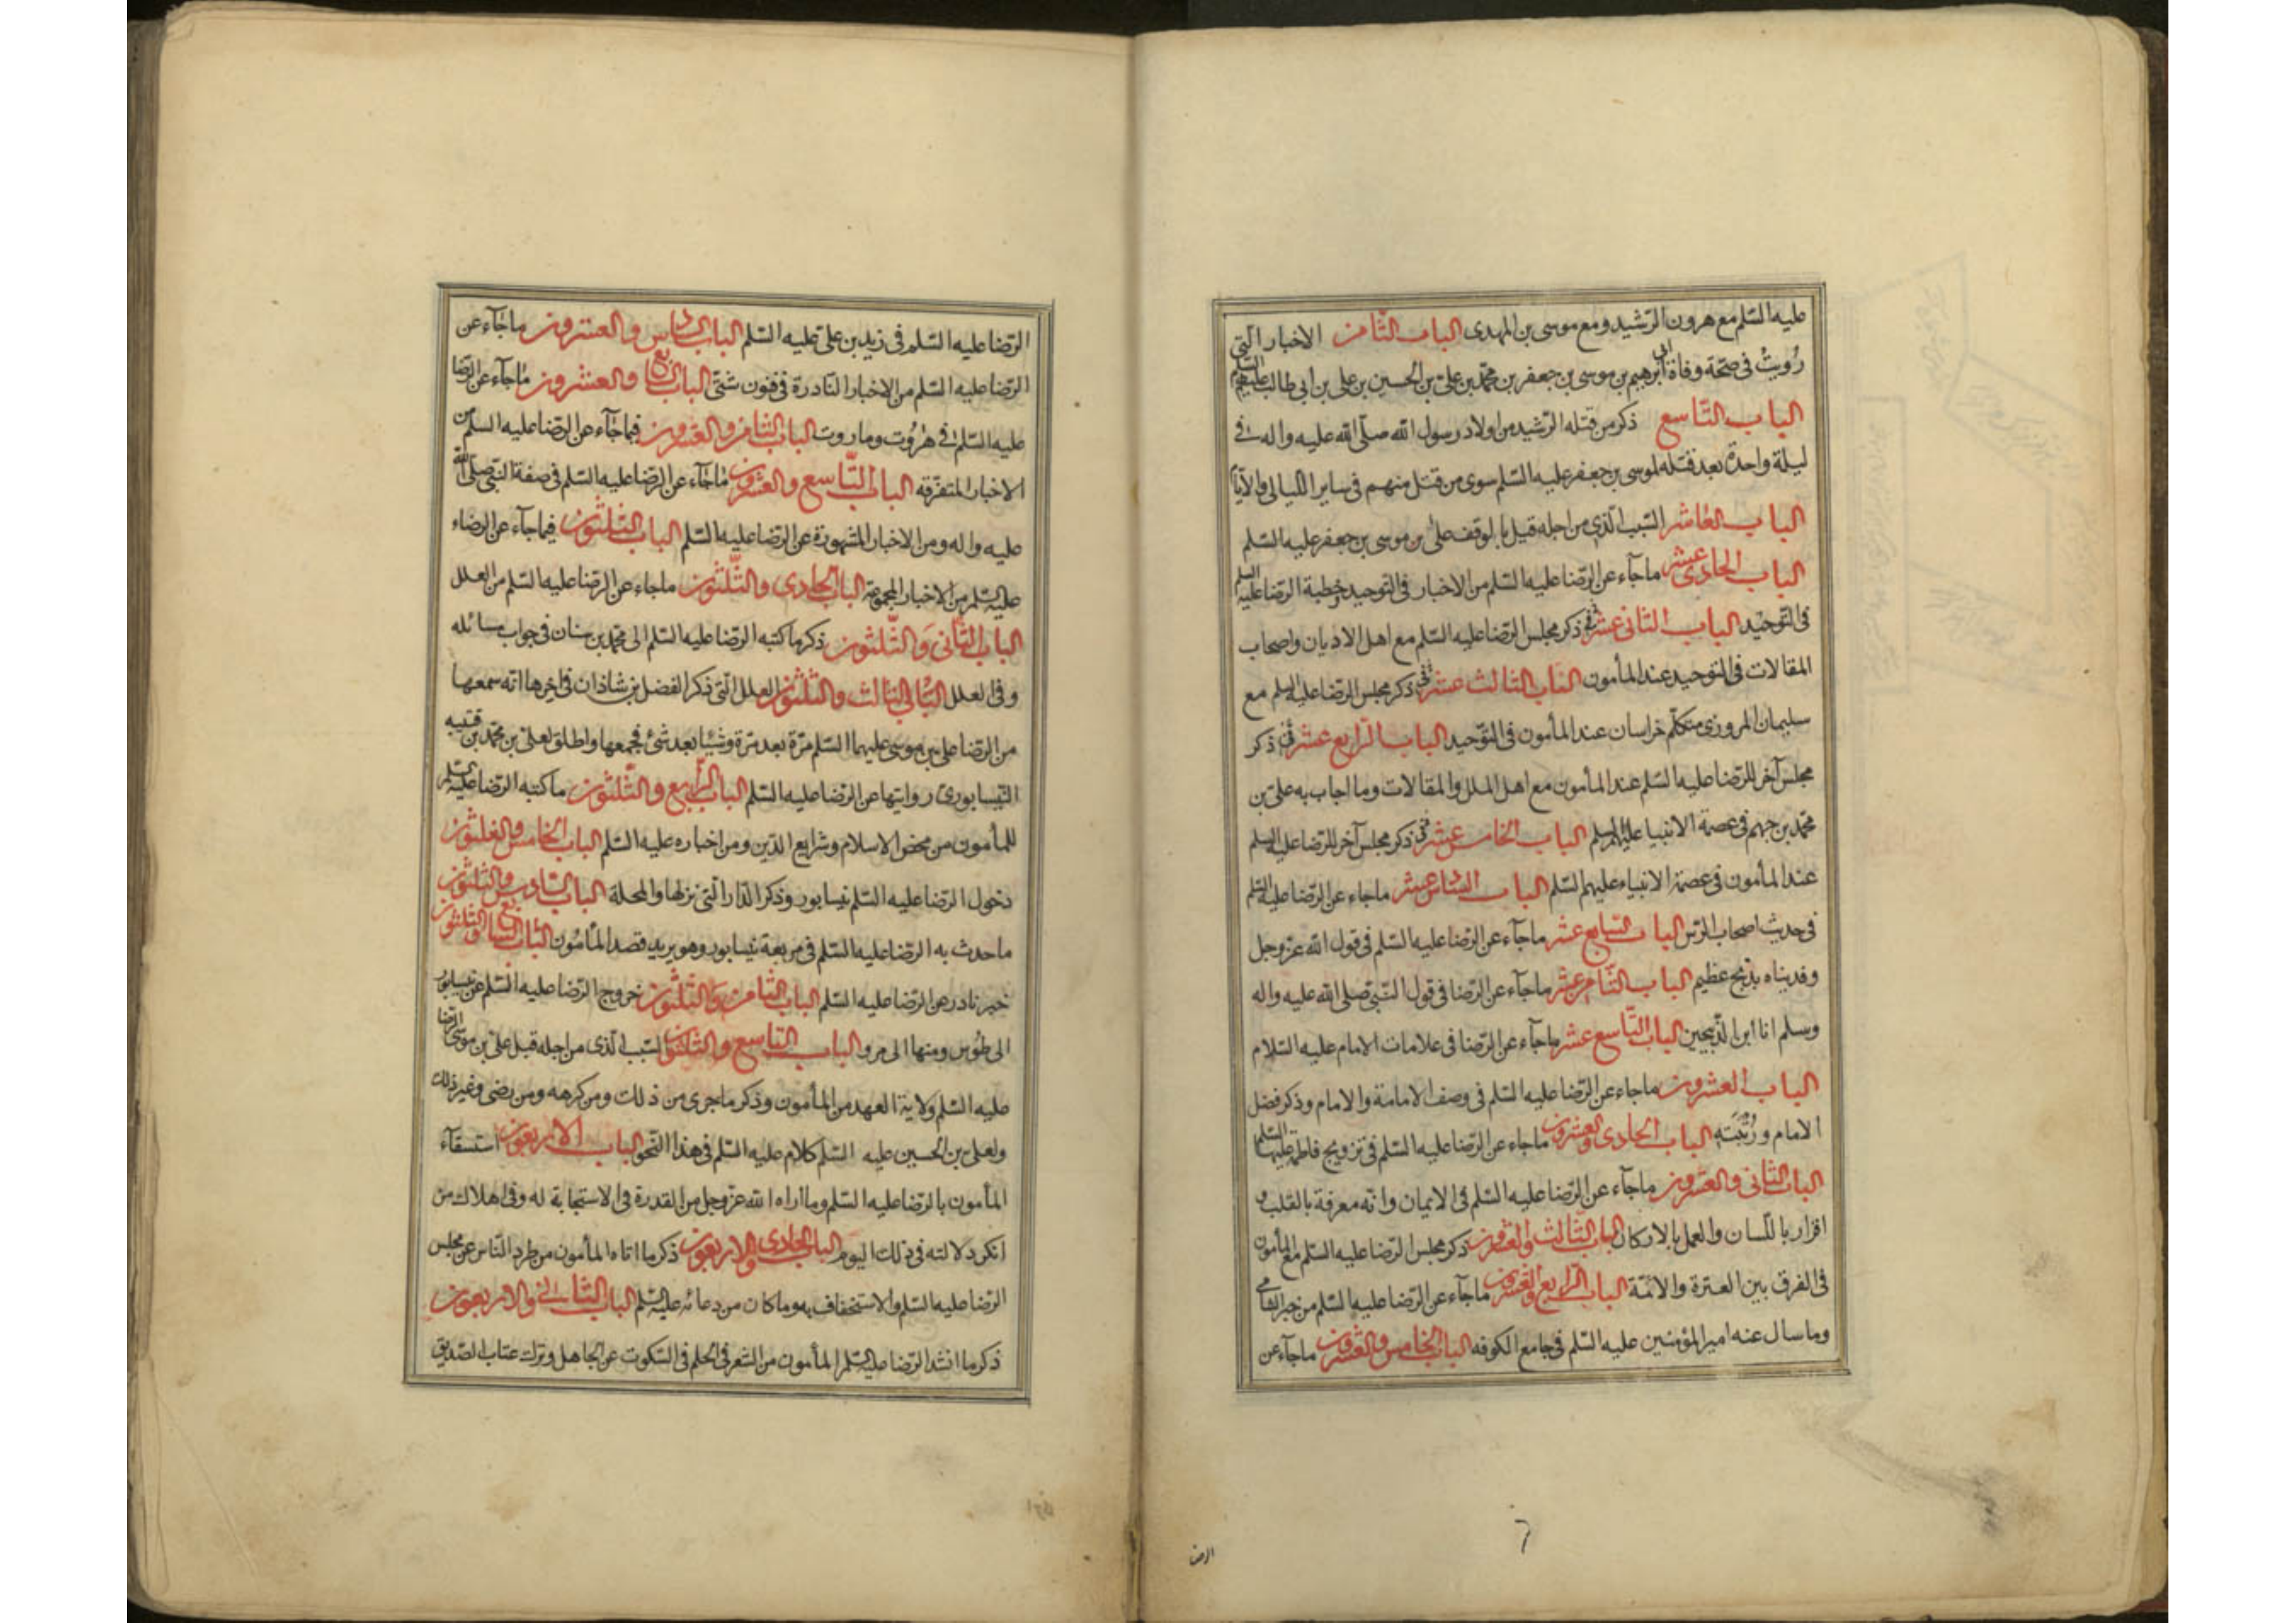 عليه السّلم مع هرون الرّشيد ومع موسى بن المهدى الباب الثّامن الاخبار الّتى
رُويتْ فى صحّة وفاة ابى ابرهيم بن موسى بن جعفر بن محمّد بن علىّ بن الحسين بن على بن ابى طالب عليهم السّلم
الباب التّاسع ذكر من قتله الرّشيد من اولاد رسول الله صلّى الله عليه واله فى
ليلة واحدة بعد قتله لموسى بن جعفر عليه السّلم سوى من قتل منهم فى ساير اللّيالى والايّام
الباب العاشر السّبب الّذى من اجله قيل بالوقف على بن موسى بن جعفر عليه السّلم
الباب الحادى عشر ما جآء عن الرّضا عليه السّلم من الاخبار فى التوحيد وخطبة الرّضا عليه السلم
فى التّوحيد الباب الثانى عشر فى ذكر مجلس الرّضا عليه السّلم مع اهل الاديان واصحاب
المقالات فى التوحيد عند المأمون الباب الثالث عشر فى ذكر مجلس الرّضا عليه السلم مع
سليمان المروزى متكلّم خراسان عند المأمون فى التّوحيد الباب الرّابع عشر فى ذكر
مجلس آخر للرّضا عليه السّلم عند المأمون مع اهل الملل والمقالات وما اجاب به علىّ بن
محمّد بن جهم فى عصمة الانبيا عليهم السلم الباب الخامس عشر فى ذكر مجلس آخر للرّضا عليه السلم
عند المأمون فى عصمة الانبياء عليهم السّلم الباب السّادس عشر ما جاء عن الرّضا عليه السّلم
فى حديث اصحاب الرّس الباب السّابع عشر ما جآء عن الرّضا عليه السّلم فى قول الله عزّ وجل
وفديناه بذبح عظيم الباب الثّامن عشر ما جآء عن الرّضا فى قول النّبىّ صلى الله عليه واله
وسلم انا ابن الذّبيحين الباب التّاسع عشر ما جآء عن الرّضا فى علامات الامام عليه السّلام
الباب العشرون ما جاء عن الرّضا عليه السّلم فى وصف الامامة والامام وذكر فضل
الامام ورُتْبَتِهِ الباب الحادى والعشرون ما جاء عن الرّضا عليه السّلم فى تزويج فاطمة عليها السّلم
الباب الثانى والعشرون ما جآء عن الرّضا عليه السّلم فى الايمان وانّه معرفة بالقلب و
اقرار باللّسان والعمل بالاركان الباب الثّالث والعشرون ذكر مجلس الرّضا عليه السّلم مع المأمون
فى الفرق بين العترة والامّة الباب الرّابع والعشرون ما جآء عن الرّضا عليه السّلم من خبر الشامى
وما سال عنه امير المؤمنين عليه السّلم فى جامع الكوفه الباب الخامس والعشرون ما جآء عن
الرضا
٦
الرّضا عليه السّلم فى زيد بن على عليه السّلم الباب السّادس والعشرون ما جآء عن
الرّضا عليه السّلم من الاخبار النّادرة فى فنون شتّى الباب السّابع والعشرون ما جآء عن الرّضا
عليه السّلم فى هٰرُوت وماروت الباب الثّامن والعشرون فيما جآء عن الرّضا عليه السلم من
الاخبار المتفرّقه الباب التّاسع والعشرون ما جآء عن الرّضا عليه السّلم فى صفة النّبىّ صلّى الله
عليه واله ومن الاخبار المشهورة عن الرّضا عليه السّلم الباب الثّلثون فيما جآء عن الرضاء
عليه السّلم من الاخبار المجموعة الباب الحادى والثّلثون ما جاء عن الرّضا عليه السّلم من العلل
الباب الثّانى وَالثّلثون ذكر ما كتبه الرّضا عليه السّلم الى محمّد بن سنان فى جواب مسائله
وفى العلل الباب الثالث والثّلثون العلل الّتى ذكر الفضل بن شاذان فى اخرها انّه سمعها
من الرّضا على بن موسى عليهما السّلم مرّة بعد مرّة وشيئا بعد شئ فجمعها واطلق لعلىّ بن محمّد بن قتيبه
النّيسابورى روايتها عن الرّضا عليه السّلم الباب الرّابع والثّلثون ما كتبه الرّضا عليه السّلم
للمأمون من محض الاسلام وشرايع الدّين ومن اخباره عليه السّلم الباب الخامس والثلثون
دخول الرّضا عليه السّلم نيسابور وذكر الدّار الّتى نزلها والمحلة الباب السّادس والثلثون
ما حدث به الرّضا عليه السّلم فى مربعة نيسابور وهو يريد قصد المأمون الباب السّابع والثّلثون
خبر نادر عن الرّضا عليه السّلم الباب الثّامن وَالثّلثون خروج الرّضا عليه السّلم عن نيسابور
الى طُوس ومنها الى مرو الباب التّاسع والثّلثون السّبب الّذى من اجله قبل علىّ بن موسى الرّضا
عليه السّلم ولاية العهد من المأمون وذكر ما جرى من ذلك ومن كرهه ومن رضى وغير ذلك
ولعلىّ بن الحسين عليه السّلم كلام عليه السّلم فى هذا النّحو الباب الاربعون استسقآء
المأمون بالرّضا عليه السّلم وما اراه الله عزّ وجل من القدرة فى الاستجابة له وفى اهلاك من
انكر دلالته فى ذلك اليوم الباب الحادى والاربعون ذكر ما اتاه المأمون من طرد النّاس عن مجلس
الرّضا عليه السّلم والاستخفاف به وما كان من دعائه عليه السّلم الباب الثّانى والاربعون
ذكر ما انشد الرّضا عليه السّلم المأمون من الشعر فى الحلم فى السّكوت عن الجاهل وترك عتاب الصّديق